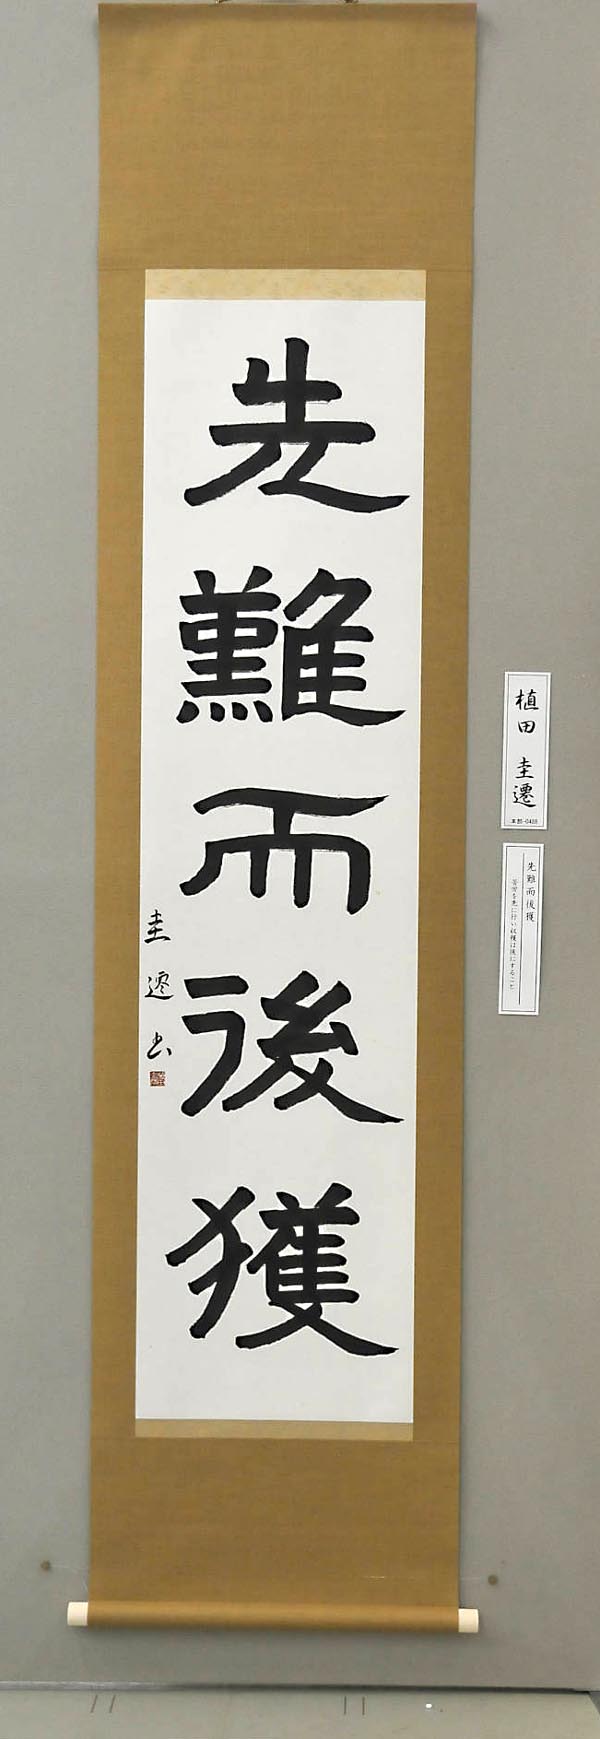 先難而後獲
圭遷書
植田 圭遷
本部-0488
先難而後獲
苦労を先に行い収穫は後にすること